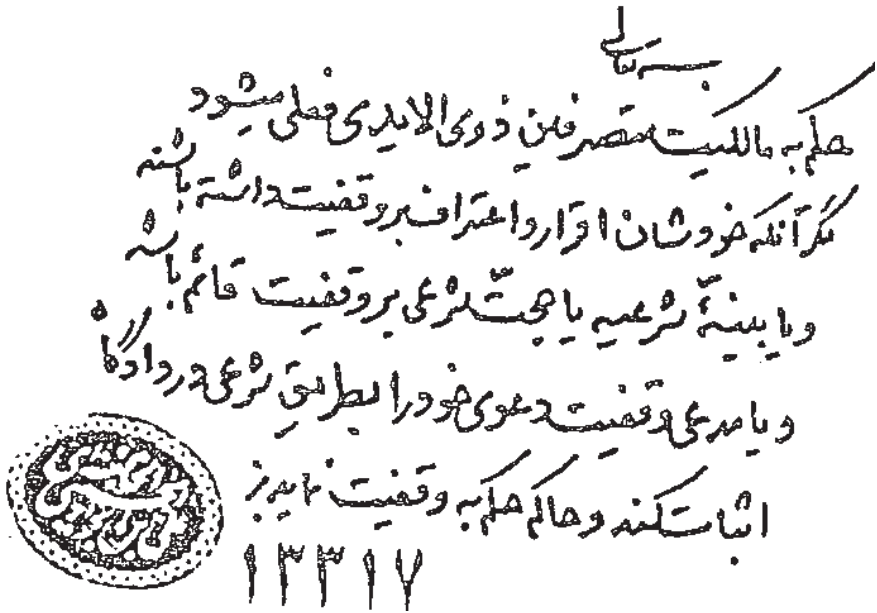 بسمه تعالی
حکم به مالکیت متصرفین ذوی الایدی فعلی میشود
مگر آنکه خودشان اقرار و اعتراف بر وقفیت داشته باشند
و یا بینهٔ شرعیه یا حجّت شرعی بر وقفیت قائم باشد
و یا مدعی وقفیت دعوی خود را بطریق شرعی در دادگاه
اثبات کند و حاکم حکم به وقفیت نماید
۱۳۳۱۷